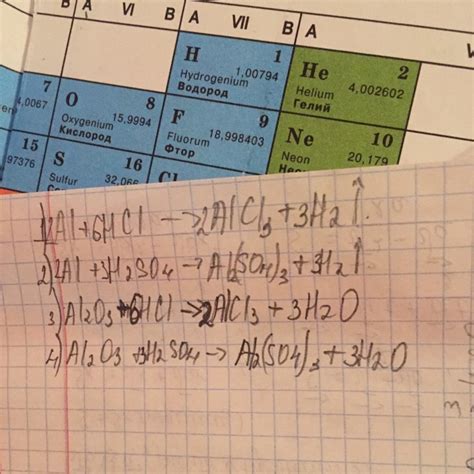 B A VI B A VII B A
H 1
Hydrogenium 1,00794
Водород
He 2
Helium 4,002602
Гелий
7
4,0067
O 8
Oxygenium 15,9994
Кислород
F 9
Fluorum 18,998403
Фтор
Ne 10
Neon 20,179
15
97376
S 16
Sulfur 32,066
1) 2Al + 6HCl → 2AlCl₃ + 3H₂↑.
2) 2Al + 3H₂SO₄ → Al₂(SO₄)₃ + 3H₂↑
3) Al₂O₃ + 6HCl → 2AlCl₃ + 3H₂O
4) Al₂O₃ + 3H₂SO₄ → Al₂(SO₄)₃ + 3H₂O